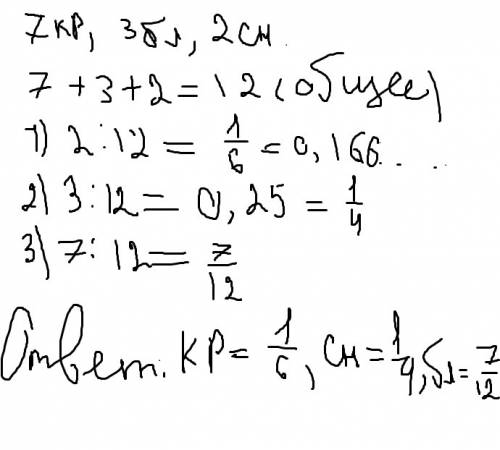 7 кр, 3 бл, 2 сн.
7 + 3 + 2 = 12 (общее)
1) 2 : 12 = 1/6 = 0,166....
2) 3 : 12 = 0,25 = 1/4
3) 7 : 12 = 7/12
Ответ. кр = 1/6, сн = 1/4, бл = 7/12